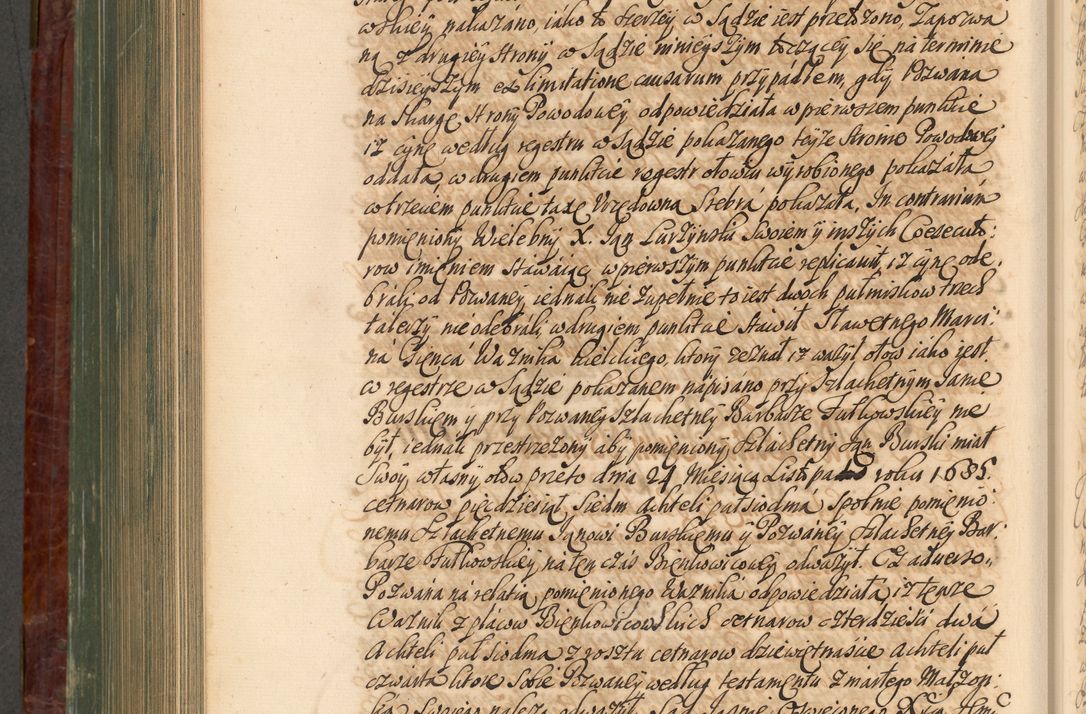 wskiey nakazáno, iáko to szerzey w Sądzie iest przełozono, Zapozwa
ną z drugiey strony w Sądzie ninieyszym toczącey się na terminie
dzisieyszym ex limitatione causarum przypádłem, gdy Pozwana
na skargę strony Powodowey odpowiedziała w pierwszem punkcie
iz cynę według regestru w Sądzie pokazanego teyze stronie Powodowey
oddała, w drugiem punkcie regestr ołowiu wyrobionego pokazáła
w trzeciem punkcie taxę Urzędowną Srebrá pokazała, In contrarium
pomieniony Wielebny X. Jan Lurzynski swoiem y inszych Coexecuto:
row imieniem stawáiąc w pierwszym punkcie replicavit iz cynę ode,
bráli, od Pozwaney, iednak nie zupełnie to iest dwoch pułmiskow trzech
talerzy nie odebráli, w drugiem punkcie stáwił Sławetnego Marci:
ná Gięncá Wáznika Kielckiego, ktory zeznał iz wazył ołow iáko iest
w regestrze w Sądzie pokazanem nápisáno przy Szlachetnym Janie
Burskiem y przy Pozwaney Szlachetney Barbarze Fulkowskiey nie
był, iednák przestrzezony áby pomieniony Szlachetny Jan Burski miał
Swoy własny ołow przeto dnia 24 Miesiąca Listopada roku 1685.
cetnarow pięcdziesiąt siedm Achteli puł siodmá spolnie pomienio
nemu Szlachetnemu Janowi Burskiemu y Pozwáney Szlachetney Bar:
barze Fulkowskiey, na ten czás Bienkowicowey odwazył. Ex adverso,,
Pozwana ná relátią pomienionego Waznika odpowiedziáłá, iz tenze
Waznik z płácow Bienkowicowskich cetnarow czterdziesci dwá
Achteli puł siodma z rosztu cetnarow dziewętnascie Achteli puł
czwarta ktore sobie Pozwaney według testamentu zmarłego Małzon:
ká Swoiego nalezą odwazył. Sąd Jasnie Oswieconego Xcia Jmc